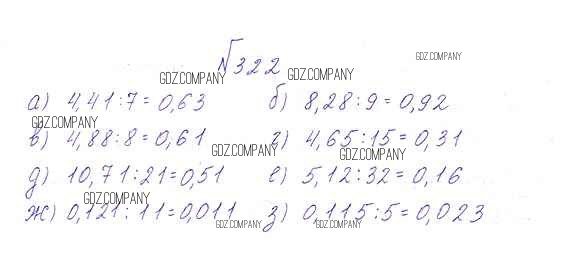 GDZ.COMPANY
№322
GDZ.COMPANY GDZ.COMPANY
а) 4,41:7=0,63 б) 8,28:9=0,92
GDZ.COMPANY
в) 4,88:8=0,61 г) 4,65:15=0,31
GDZ.COMPANY GDZ.COMPANY
д) 10,71:21=0,51 е) 5,12:32=0,16
GDZ.COMPANY
ж) 0,121:11=0,011 з) 0,115:5=0,023
GDZ.COMPANY GDZ.COMPANY